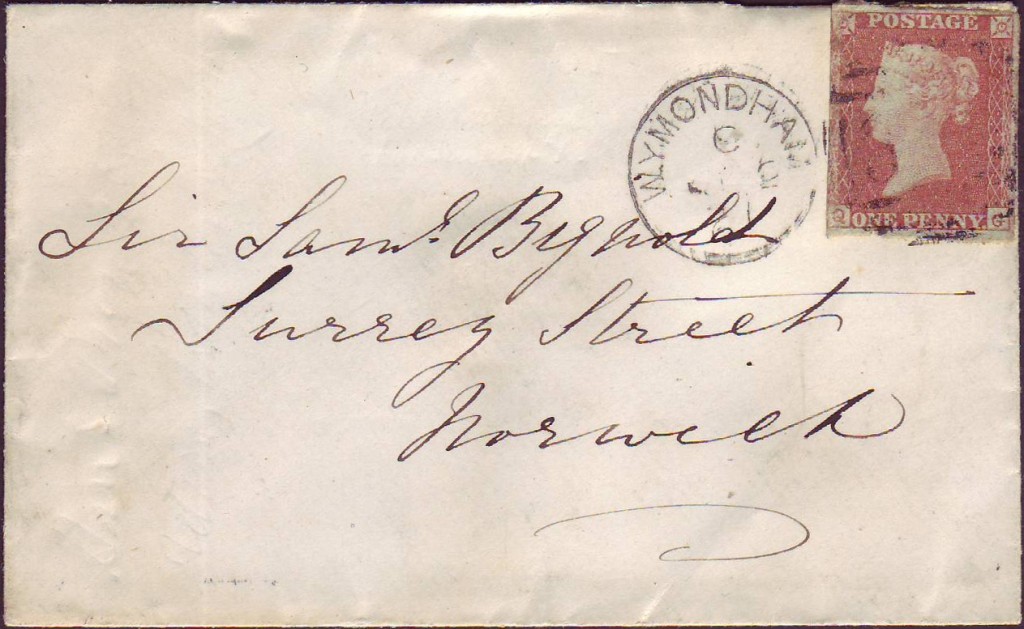 POSTAGE
ONE PENNY
Q G
WYMONDHAM
C
Sir Saml. Bignold
Surrey Street
Norwich